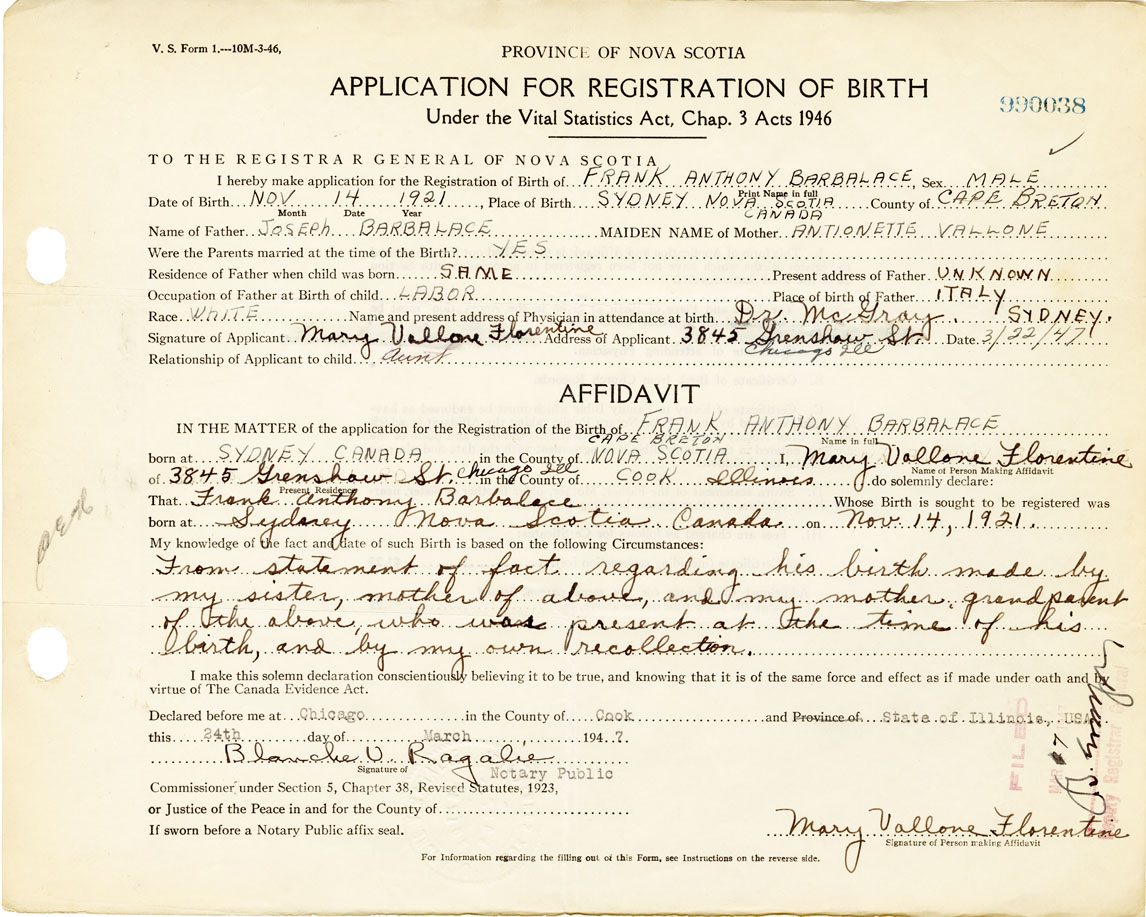 V. S. Form 1.---10M-3-46,
PROVINCE OF NOVA SCOTIA
APPLICATION FOR REGISTRATION OF BIRTH
990038
Under the Vital Statistics Act, Chap. 3 Acts 1946
TO THE REGISTRAR GENERAL OF NOVA SCOTIA
I hereby make application for the Registration of Birth of FRANK ANTHONY BARBALACE, Sex MALE
Print Name in full
Date of Birth NOV 14 1921, Place of Birth SYDNEY NOVA SCOTIA County of CAPE BRETON
Month Date Year CANADA
Name of Father JOSEPH BARBALACE MAIDEN NAME of Mother ANTIONETTE VALLONE
Were the Parents married at the time of the Birth? YES
Residence of Father when child was born SAME Present address of Father UNKNOWN
Occupation of Father at Birth of child LABOR Place of birth of Father ITALY
Race WHITE Name and present address of Physician in attendance at birth Dr. McGray, SYDNEY.
Signature of Applicant Mary Vallone Florentine Address of Applicant 3845 Grenshaw St. Date 3/22/47
Chicago Ill
Relationship of Applicant to child aunt
AFFIDAVIT
IN THE MATTER of the application for the Registration of the Birth of FRANK ANTHONY BARBALACE
CAPE BRETON Name in full
born at SYDNEY CANADA in the County of NOVA SCOTIA I, Mary Vallone Florentine
Name of Person Making Affidavit
of 3845 Grenshaw St. Chicago Ill in the County of COOK Illinois do solemnly declare:
Present Residence
That Frank Anthony Barbalace Whose Birth is sought to be registered was
born at Sydney Nova Scotia Canada on Nov. 14, 1921.
My knowledge of the fact and date of such Birth is based on the following Circumstances:
From statement of fact regarding his birth made by
my sister, mother of above, and my mother, grandparent
of the above, who was present at the time of his
birth, and by my own recollection.
I make this solemn declaration conscientiously believing it to be true, and knowing that it is of the same force and effect as if made under oath and by
virtue of The Canada Evidence Act.
Declared before me at Chicago in the County of Cook and Province of State of Illinois, USA
this 24th day of March 1947.
Blanche V. Ragalie
Signature of Notary Public
Commissioner under Section 5, Chapter 38, Revised Statutes, 1923,
or Justice of the Peace in and for the County of
If sworn before a Notary Public affix seal.
Mary Vallone Florentine
Signature of Person making Affidavit
For Information regarding the filling out of this Form, see Instructions on the reverse side.
FILED
Deputy Registrar General